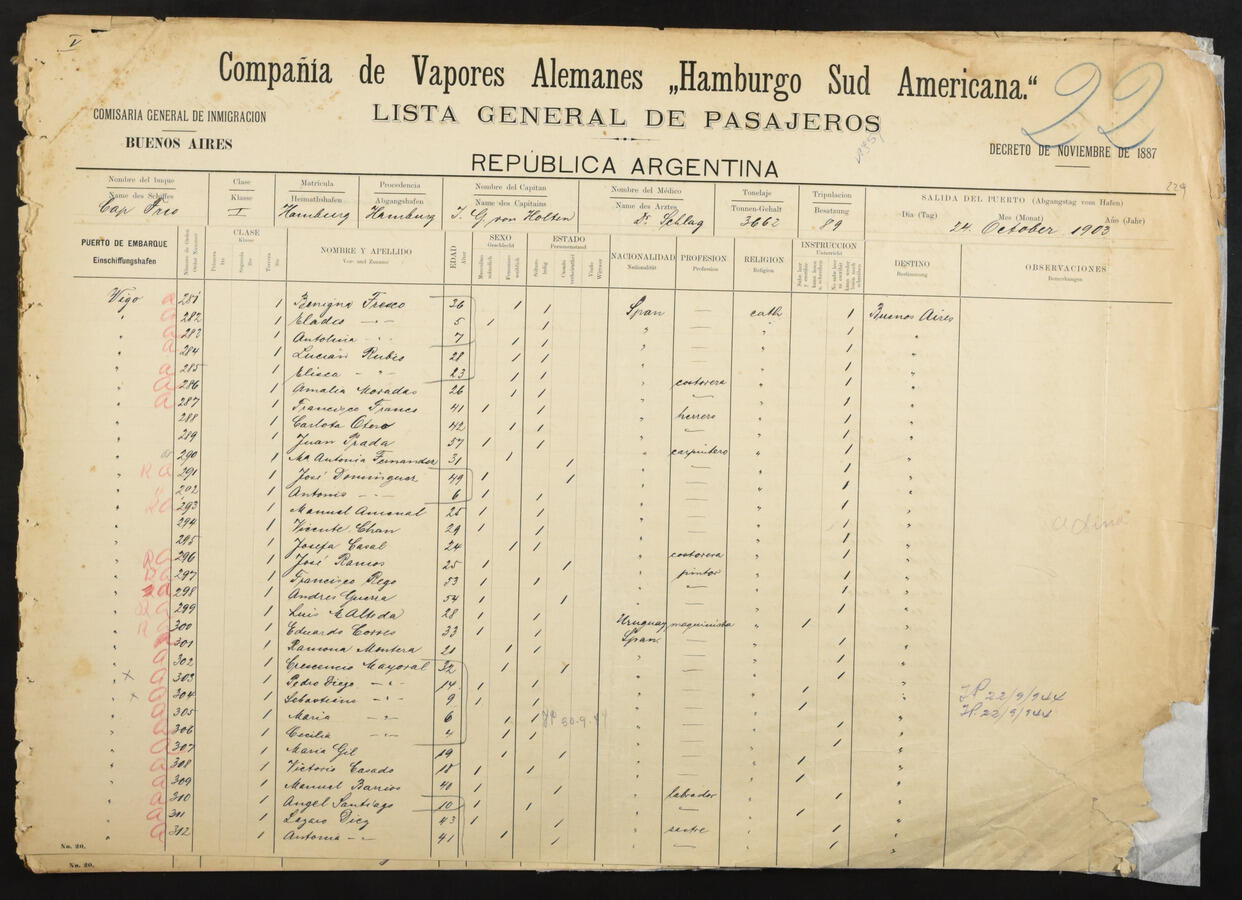 V
Compañía de Vapores Alemanes „Hamburgo Sud Americana.“
22
COMISARIA GENERAL DE INMIGRACION
BUENOS AIRES
LISTA GENERAL DE PASAJEROS
DECRETO DE NOVIEMBRE DE 1887
REPÚBLICA ARGENTINA
229
Nombre del buque Clase Matrícula Procedencia Nombre del Capitan Nombre del Médico Tonelaje Tripulacion SALIDA DEL PUERTO (Abgangstag vom Hafen)
Name des Schiffes Klasse Heimathshafen Abgangshafen Name des Capitains Name des Arztes Tonnen-Gehalt Besatzung Dia (Tag) Mes (Monat) Año (Jahr)
Cap Frio I Hamburg Hamburg J. G. von Holten Dr. Schlag 3662 89 24. October 1903
PUERTO DE EMBARQUE CLASE NOMBRE Y APELLIDO EDAD SEXO ESTADO NACIONALIDAD PROFESION RELIGION INSTRUCCION DESTINO OBSERVACIONES
Einschiffungshafen Klasse Vor- und Zuname Alter Geschlecht Personenstand Nationalität Profession Religion Unterricht Bestimmung Bemerkungen
Vigo 281 1 Benigna Fresco 36 1 1 Span — cath 1 Buenos Aires
" 282 1 Eladio — " — 5 1 1 " — " 1 "
" 283 1 Antolina " 7 1 1 " — " 1 "
" 284 1 Lucian Rubio 28 1 1 " — " 1 "
" 285 1 Elisea — " — 23 1 1 " — " 1 "
" 286 1 Amalia Moradas 26 1 1 " costorera " 1 "
" 287 1 Francisco Franco 41 1 1 " — " 1 "
" 288 1 Carlota Otero 42 1 1 " herrero " 1 "
" 289 1 Juan Prada 57 1 1 " — " 1 "
" 290 1 Ma Antonia Fernandez 31 1 1 " carpintero " 1 "
" 291 1 José Dominguez 49 1 1 " — " 1 "
" 292 1 Antonio — " — 6 1 1 " — " 1 "
" 293 1 Manuel 25 1 1 " — " 1 "
" 294 1 Vicente Chan 29 1 1 " — " 1 "
" 295 1 Josefa Casal 24 1 1 " — " 1 "
" 296 1 José Ramos 25 1 1 " costorera " 1 "
" 297 1 Francisco Rego 53 1 1 " pintor " 1 "
" 298 1 Andres Guerra 54 1 1 " — " 1 "
" 299 1 Luis 28 1 1 " — " 1 "
" 300 1 Eduardo Corres 33 1 1 Uruguay maquinista " 1 "
" 301 1 Ramona Montera 21 1 1 Span. — " 1 "
" 302 1 Crescencio Mayoral 32 1 1 " — " 1 "
" 303 1 Pedro Diego — " — 14 1 1 " — " 1 "
" 304 1 Sebastiano — " — 9 1 1 " — " 1 " JP. 22/9/944
" 305 1 Maria — " — 6 1 1 30.9.44 " — " 1 " JP. 22/9/944
" 306 1 Cecilia — " — 4 1 1 " — " 1 "
" 307 1 Maria Gil 19 1 1 " — " 1 "
" 308 1 Victorio Casado 18 1 1 " — " 1 "
" 309 1 Manuel Barrios 40 1 1 " — " 1 "
" 310 1 Angel Santiago 10 1 1 " labrador " 1 "
" 311 1 Lazaro Diez 43 1 1 " — " 1 "
" 312 1 Antonia — " — 41 1 1 " sastre " 1 "
No. 20.
No. 20.